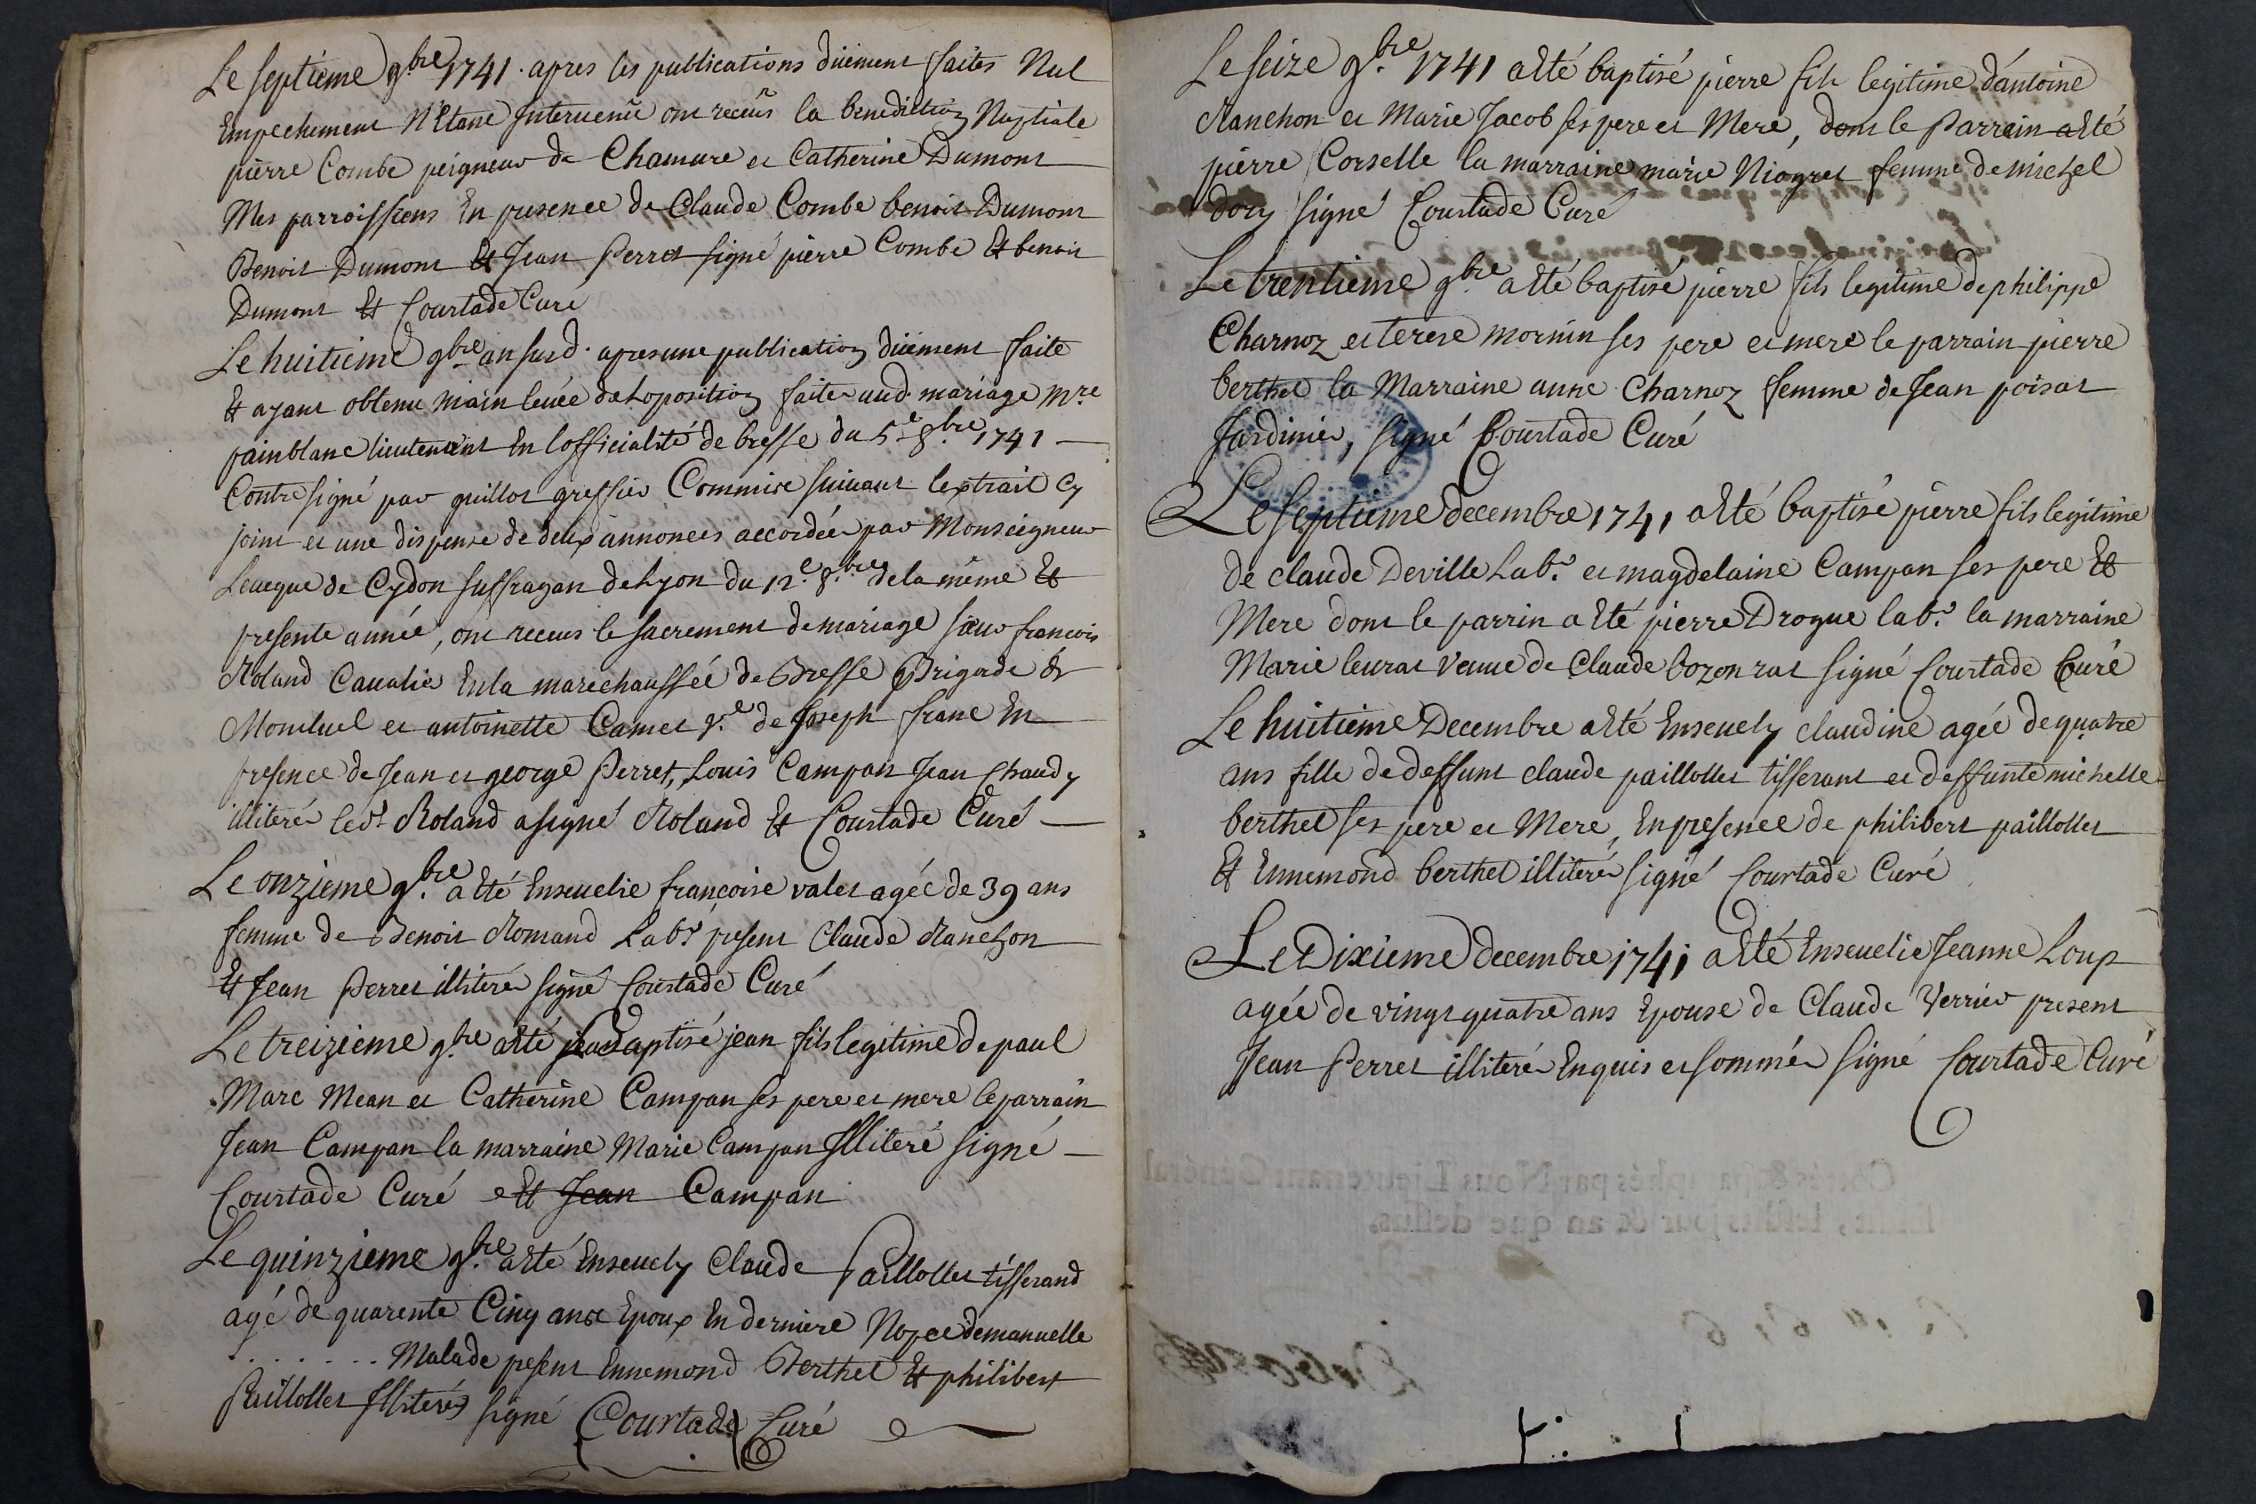 Le septieme 9bre 1741. apres les publications düement faites Nul
Empechement N'etant Intervenu ont receus la benediction Nuptiale
pierre Combe peigneur de Chanvre et Catherine Dumont
Mes parroissiens En presence de Claude Combe benoit Dumont
Benoit Dumont Et Jean Perret signé pierre Combe Et benoit
Dumont Et Courtade Curé
Le huitieme 9bre an susd. apres une publication düement faite
Et ayant obtenu main levée de Loposition faite aud. mariage Mre
painblanc lieutenent En Lofficialité de bresse du 5e 8bre 1741
Contresigné par guillot greffier Commise suivant lextrait cy
joint et une dispense de deux annonces accordée par Monseigneur
Leveque de Cydon suffragan de Lyon du 12e 8bre de la même Et
presente année, ont receus le sacrement de mariage sieur francois
Roland Cavalier En la marechaussée de Bresse Brigade de
Montluel et antoinette Camet Ve de Joseph franc En
presence de Jean et george Perret, Louis Campan Jean Chaudy
illiterés led. Roland a signé Roland Et Courtade Curé
Le onzieme 9bre a Eté Ensevelie francoise valet agée de 39 ans
femme de Benoit Romand Labr present Claude Ranchon
Et Jean Perret illiterés signé Courtade Curé
Le treizieme 9bre a Eté baptisé jean fils legitime de paul
Marc Mean et Catherine Campan ses pere et mere le parrain
Jean Campan la marraine Marie Campan Illiteré signé
Courtade Curé Et Jean Campan
Le quinzieme 9bre a Eté Ensevely Claude Paillollet tisserand
agé de quarente Cinq ans Epoux En derniere Nopce demanuelle
. . . . . . . Malade present Ennemond Berthet Et philibert
Paillollet Illiterés signé Courtade Curé
Le seize 9bre 1741 a Eté baptisé pierre fils legitime d'antoine
Ranchon et Marie Jacob ses pere et Mere, dont le Parrain a Eté
pierre Corselle la marraine marie Niogret femme de michel
dory signé Courtade Curé
Le trentieme 9bre a Eté baptisé pierre fils legitime de philippe
Charnoz et terese mornin ses pere et mere le parrain pierre
berthet la Marraine anne Charnoz femme de Jean poisat
Jardinier, signé Courtade Curé
Le septieme decembre 1741 a Eté baptisé pierre fils legitime
de claude Deville Labr et magdelaine Campan ses pere Et
Mere dont le parrin a Eté pierre Drogue labr la marraine
Marie leurat veuve de Claude bozonrat signé Courtade Curé
Le huitieme Decembre a Eté Ensevely claudine agée de quatre
ans fille de deffunt claude paillollet tisserant et deffunte michelle
berthet ses pere et Mere, En presence de philibert paillollet
Et Ennemond berthet illiterés signé Courtade Curé
Le Dixieme decembre 1741 a Eté Ensevelie Jeanne Loup
agée de vingt quatre ans Epouse de Claude Verrier present
Jean Perret illiterés Enquis et sommés signé Courtade Curé